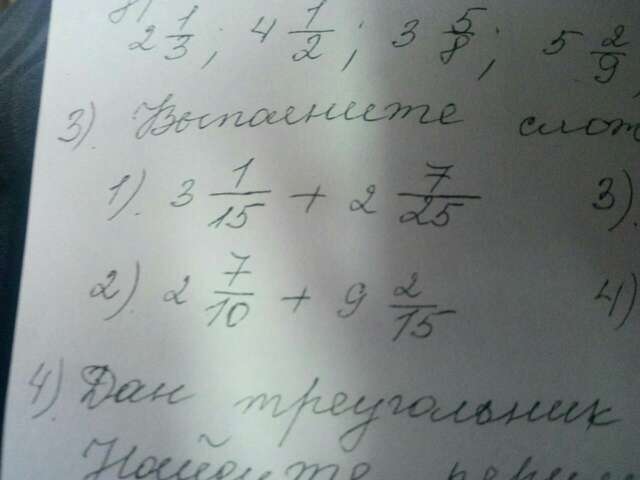 2 1/3; 4 1/2; 3 5/8; 5 2/9,
3). Выполните слож
1). 3 1/15 + 2 7/25 3).
2). 2 7/10 + 9 2/15 4)
4). Дан треугольник
Найдите